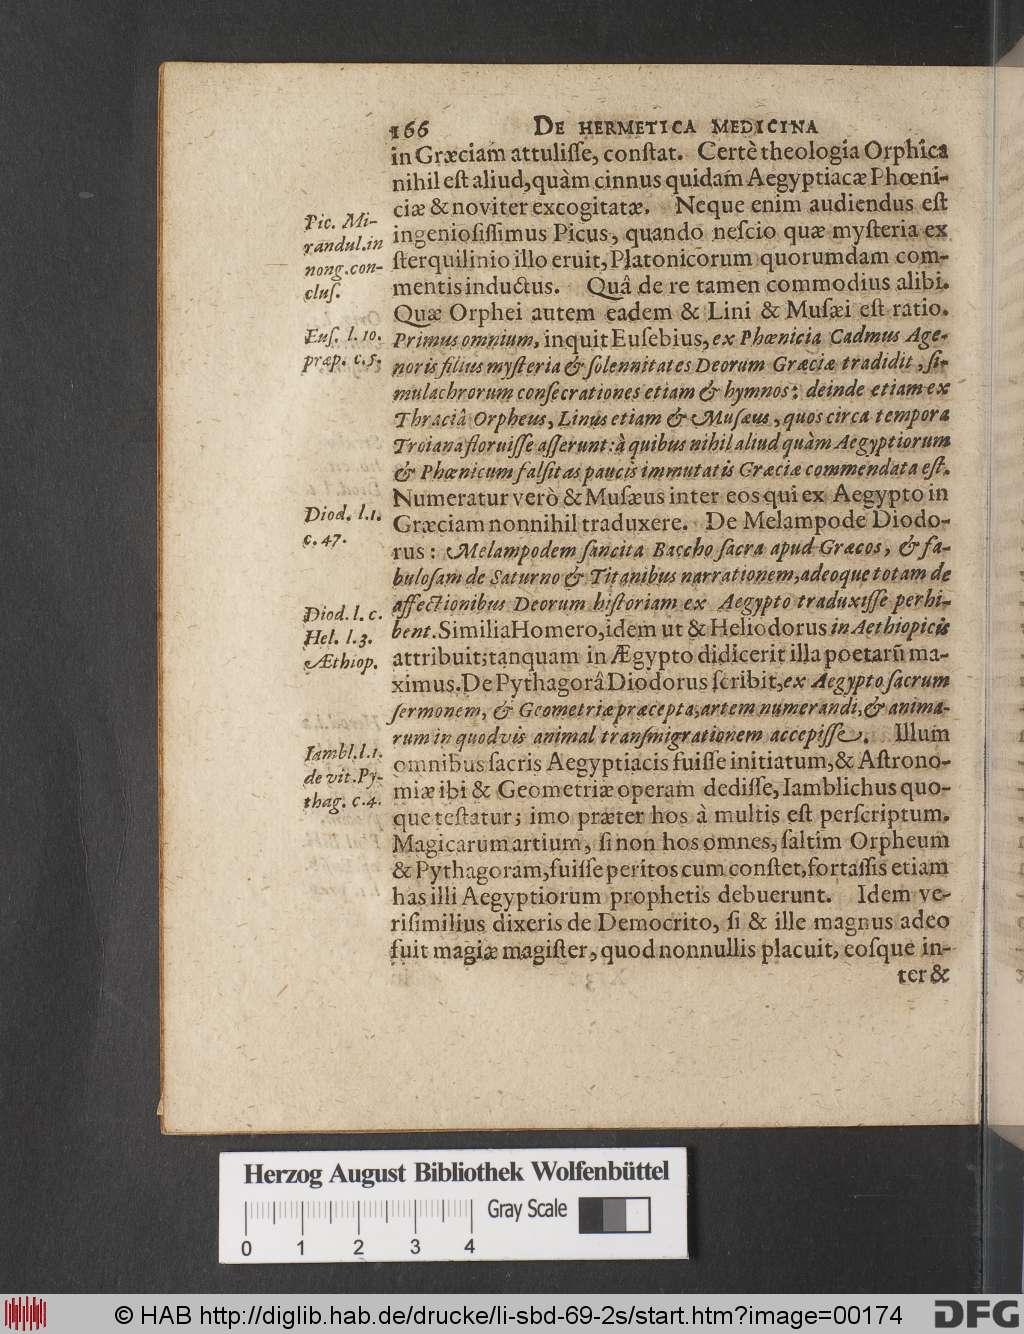 166 DE HERMETICA MEDICINA
in Græciam attulisse, constat. Certè theologia Orphica
nihil est aliud, quàm cinnus quidam Aegyptiacæ Phœni-
ciæ & noviter excogitatæ. Neque enim audiendus est
ingeniosissimus Picus, quando nescio quæ mysteria ex
sterquilinio illo eruit, Platonicorum quorumdam com-
mentis inductus. Quâ de re tamen commodius alibi.
Quæ Orphei autem eadem & Lini & Musæi est ratio.
Primus omnium, inquit Eusebius, ex Phœnicia Cadmus Age-
noris filius mysteria & solennitates Deorum Græciæ tradidit, si-
mulachrorum consecrationes etiam & hymnos: deinde etiam ex
Thraciâ Orpheus, Linus etiam & Musæus, quos circa tempora
Troiana floruisse asserunt: à quibus nihil aliud quàm Aegyptiorum
& Phœnicum falsitas paucis immutatis Græciæ commendata est.
Numeratur verò & Musæus inter eos qui ex Aegypto in
Græciam nonnihil traduxere. De Melampode Diodo-
rus: Melampodem sancita Baccho sacra apud Græcos, & fa-
bulosam de Saturno & Titanibus narrationem, adeoque totam de
affectionibus Deorum historiam ex Aegypto traduxisse perhi-
bent. Similia Homero, idem ut & Heliodorus in Aethiopicis
attribuit; tanquam in Ægypto didicerit illa poetarū ma-
ximus. De Pythagorâ Diodorus scribit, ex Aegypto sacrum
sermonem, & Geometriæ præcepta, artem numerandi, & anima-
rum in quodvis animal transmigrationem accepisse. Illum
omnibus sacris Aegyptiacis fuisse initiatum, & Astrono-
miæ ibi & Geometriæ operam dedisse, Iamblichus quo-
que testatur; imo præter hos à multis est perscriptum.
Magicarum artium, si non hos omnes, saltim Orpheum
& Pythagoram, fuisse peritos cum constet, fortassis etiam
has illi Aegyptiorum prophetis debuerunt. Idem ve-
risimilius dixeris de Democrito, si & ille magnus adeo
fuit magiæ magister, quod nonnullis placuit, eosque in-
ter &
Pic. Mi-
randul. in
nong. con-
clus.
Eus. l. 10.
præp. c. 5.
Diod. l. 1.
c. 47.
Diod. l. c.
Hel. l. 3.
Æthiop.
Iambl. l. 1.
de vit. Py-
thag. c. 4.
Herzog August Bibliothek Wolfenbüttel
Gray Scale
0 1 2 3 4
© HAB http://diglib.hab.de/drucke/li-sbd-69-2s/start.htm?image=00174
DFG